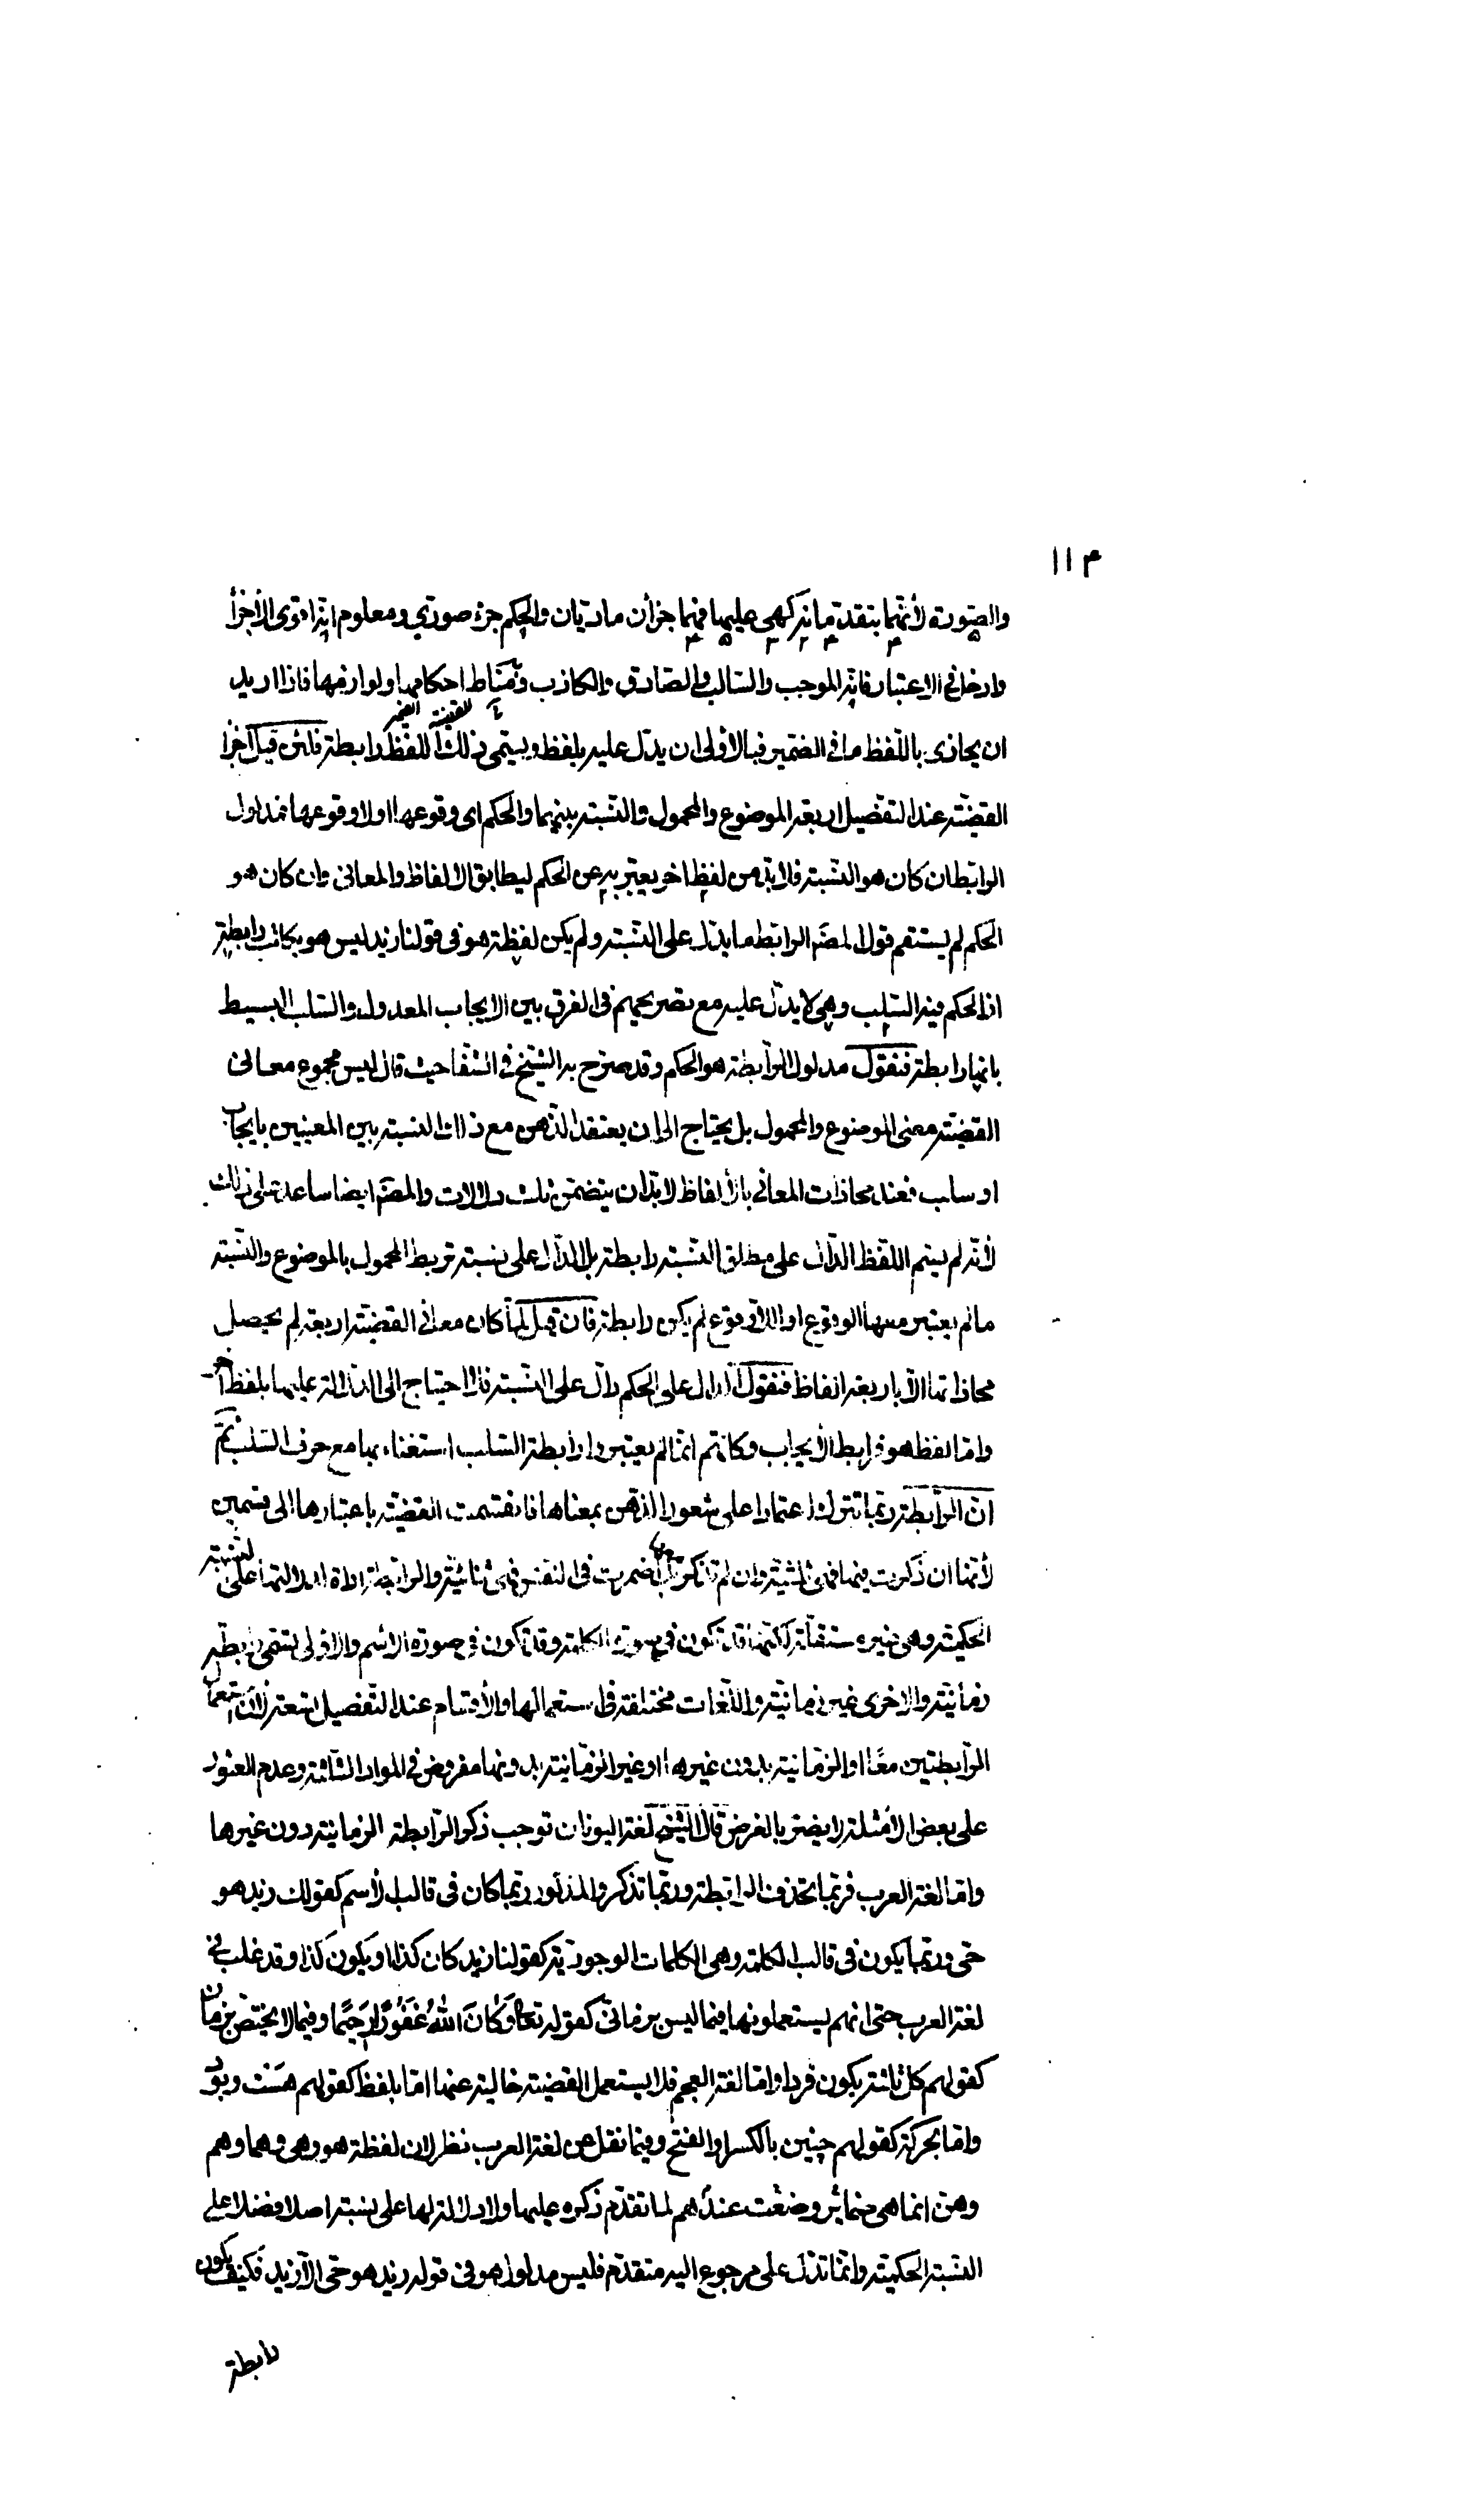 ١١٣
والصورة لأنهما بتقدمانه كهى عليهما فهما جزآن ماديان والحكم جزء صوري ومعلوم انه اقوى الأجزا
وادخل فى الاعتبار فانه الموجب والسالب والصادق والكاذب ومناط احكامها ولوازمها فاذا اريد
ان يحاذى باللفظ ما فى الضمير فبالأولى ان يدل عليه بلفظ ويسمى ذلك اللفظ رابطة فلئن قيل اجزا
القضية عند التفضيل اربعة الموضوع والمحمول والنسبة بينهما والحكم اى وقوعها او لا وقوعها فمدلول
الرابطة ان كان هو النسبة فلا بد من لفظ اخر يعتبر به عن الحكم ليطابق الالفاظ والمعانى وان كان هو
الحكم لم يستقم قول المص الرابطة ما يدل على النسبة ولم يكن لفظة هو فى قولنا زيد ليس هو بكاتب رابطة
اذ الحكم فيه السلب وهى لا يدل عليه مع تصريحهم فى الفرق بين الايجاب المعدول والسلب البسيط
بانها رابطة فنقول مدلول الرابطة هو الحكم وقد صرح به الشيخ فى الشفا حيث قال ليس مجموع معانى
القضية معنى الموضوع والمحمول بل يحتاج الى ان يعتقد الذهن مع ذلك النسبة بين المعنيين بايجاب
او سلب فعند محاذات المعانى بالألفاظ لا بد ان يتضمن ثلث دلالات والمص ايضا ساعد على ذلك
لأنه لم يسم اللفظ الدال على مطلق النسبة رابطة بل الدال على نسبة تربط المحمول بالموضوع والنسبة
ما لم يعتبر معها الوقوع او اللاوقوع لم يكن رابطة فان قيل لما كان معانى القضية اربعة لم يحصل
محاذاتها الا باربعة الفاظ فنقول الدال على الحكم دال على النسبة فلا احتياج الى الدلالة عليها بلفظ اخر
واما لفظ هو فرابط الايجاب وكانهم انما لم يعتبروا رابطة السلب استغناء بها مع حرف السلب ثم
ان الرابطة ربما تترك اعتمادا على شعور الذهن بمعناها فانقسمت القضية باعتبارها الى قسمين
لأنها ان ذكرت فيها فهى ثلاثية وان لم تذكر بل اضمرت فى النفس فهى ثنائية والرابطة اداة لدلالتها على النسبة
الحكمية وهى غير مستقلة لكنها قد تكون فى صورة الكلمة وقد تكون فى صورة الاسم والاولى تسمى رابطة
زمانية والاخرى غير زمانية واللغات مختلفة فى استعمالها والأقسام عند التفصيل تسعة لأن استعمال
الرابطتين معًا او الزمانية بدون غيرها او غير الزمانية بدونها مفروض فى المواد الثلاثة وعدم العثور
على بعض الأمثلة لا يضر بالغرض قال الشيخ لغة اليونان توجب ذكر الرابطة الزمانية دون غيرها
واما لغة العرب فربما تحذف الرابطة وربما تذكر والمذكور ربما كان فى قالب الأسم كقولك زيد هو
حى وربما يكون فى قالب الكلمة وهى الكلمات الوجودية كقولنا زيد كان كذا او يكون كذا وقد غلب فى
لغة العرب حتى انهم يستعملونها فيما ليس بزمانى كقوله تعالى وَكَانَ اللهُ غَفُورًا رَحِيمًا وفيما لا يختص بزمان
كقولهم كل ثلثة يكون فردا واما لغة العجم فلا يستعمل القضية خالية عنها اما بلفظ كقولهم هست وبود
واما بحركة كقولهم چنين بالكسر او الفتح وفيما نقل عن لغة العرب نظر لان لفظة هو وهى وهما وهم
وهن انما هى ضمائر وضعت عندهم لما تقدم ذكره عليها ولا دلالة لها على نسبة اصلا فضلا على
النسبة الحكمية وانما تدل على مرجوع اليه متقدم فليس مدلول هو فى قوله زيد هو حى الا زيد فكيف يكون
رابطة